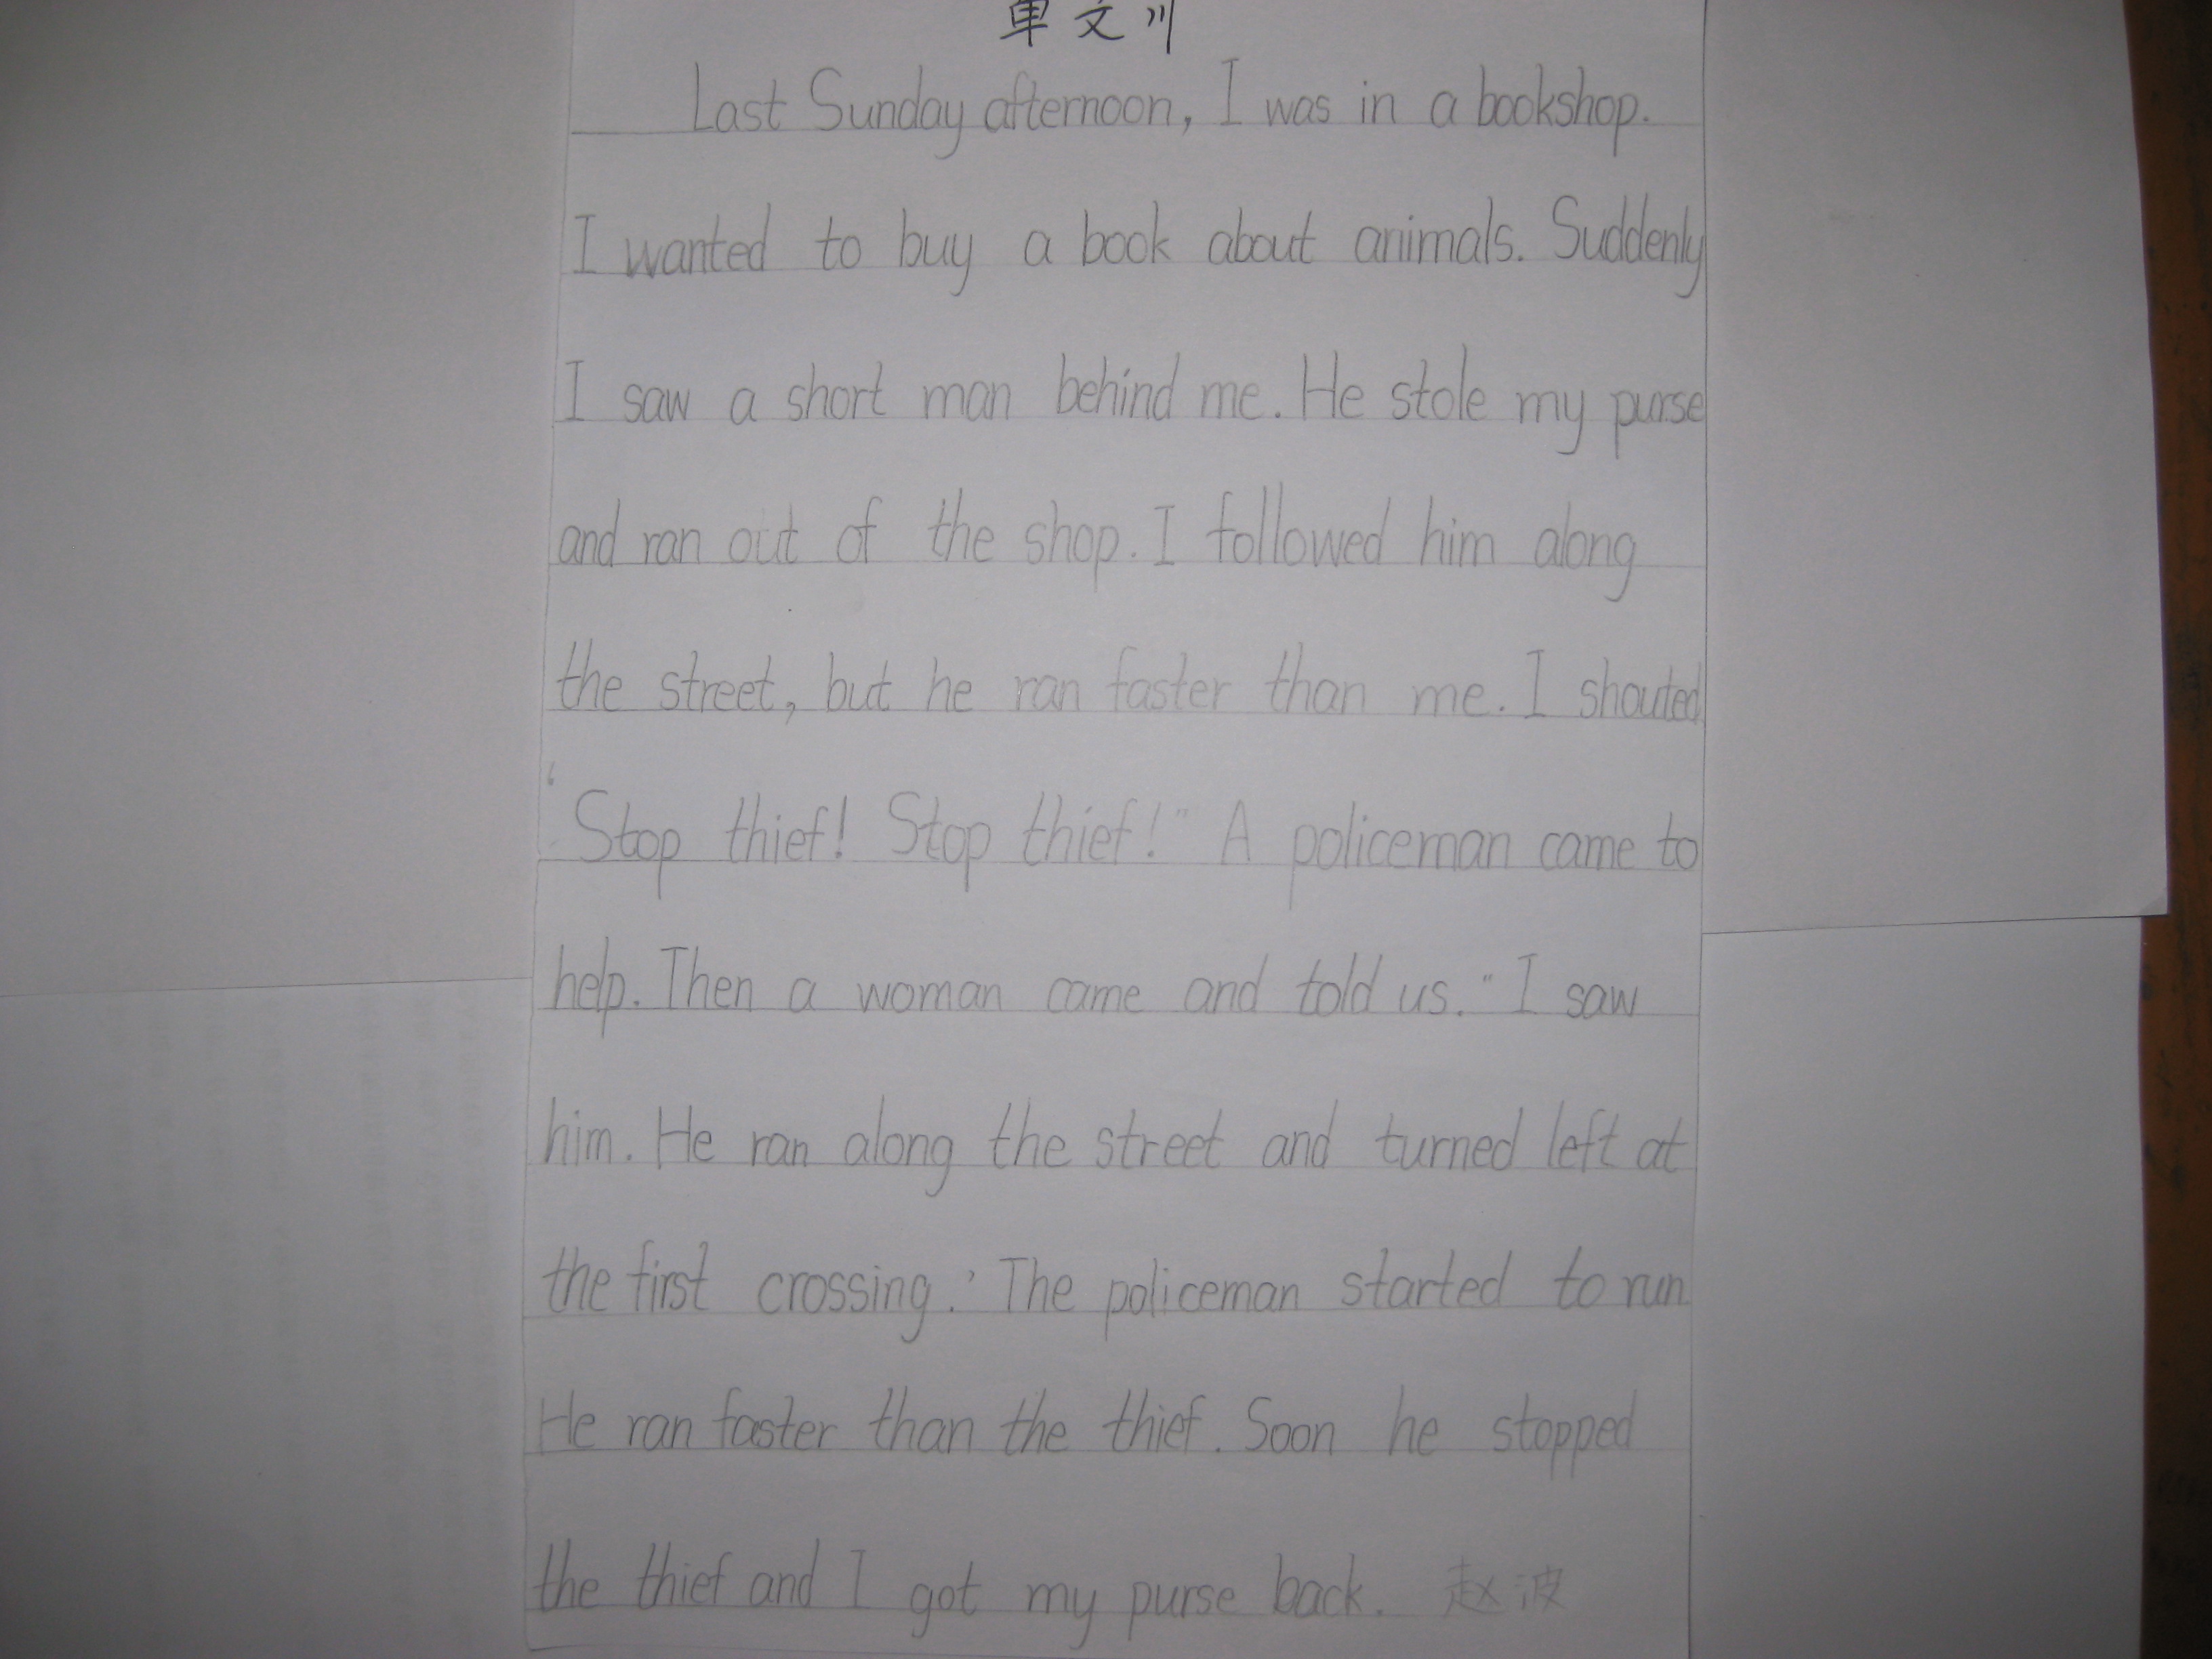 单文川
Last Sunday afternoon, I was in a bookshop.
I wanted to buy a book about animals. Suddenly
I saw a short man behind me. He stole my purse
and ran out of the shop. I followed him along
the street, but he ran faster than me. I shouted
“Stop thief! Stop thief!” A policeman came to
help. Then a woman came and told us. “I saw
him. He ran along the street and turned left at
the first crossing.” The policeman started to run.
He ran faster than the thief. Soon he stopped
the thief and I got my purse back. 赵波